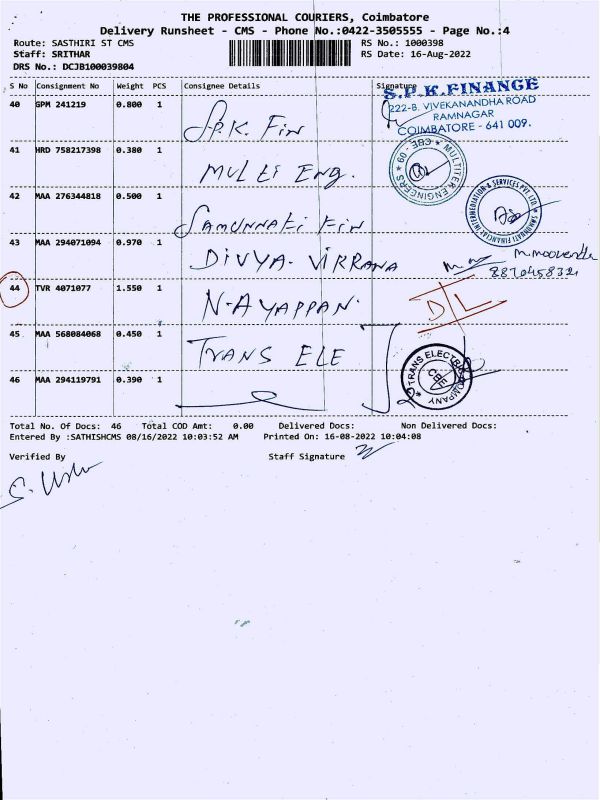 THE PROFESSIONAL COURIERS, Coimbatore
Delivery Runsheet - CMS - Phone No.:0422-3505555 - Page No.:4
Route: SASTHIRI ST CMS
RS No.: 1000398
Staff: SRITHAR
RS Date: 16-Aug-2022
DRS No.: DCJB100039804
S No Consignment No Weight PCS Consignee Details Signature
S.P.K.FINANCE
222-B, VIVEKANANDHA ROAD
RAMNAGAR
COIMBATORE - 641 009.
40 GPM 241219 0.800 1 S.P.K. Fin
41 HRD 758217398 0.380 1 Multi Eng.
MULTITEK ENGINEERS * CBE - 09 *
42 MAA 276344818 0.500 1 Samunnati Fin
SAMUNNATI FINANCIAL INTERMEDIATION & SERVICES PVT LTD
43 MAA 294071094 0.970 1 DIVYA. VIRRANA
44 TVR 4071077 1.550 1 N-AYAPPAN.
D/L
45 MAA 568084068 0.450 1 TRANS ELE
TRANS ELECTRICAL COMPANY
CBE
46 MAA 294119791 0.390 1
Total No. Of Docs: 46 Total COD Amt: 0.00 Delivered Docs: Non Delivered Docs:
Entered By :SATHISHCMS 08/16/2022 10:03:52 AM Printed On: 16-08-2022 10:04:08
Verified By
Staff Signature